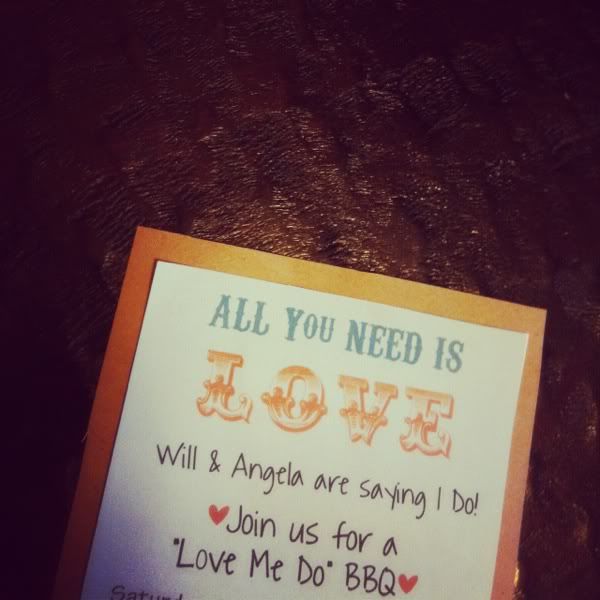 ALL YOU NEED IS
LOVE
Will & Angela are saying I Do!
Join us for a
"Love Me Do" BBQ